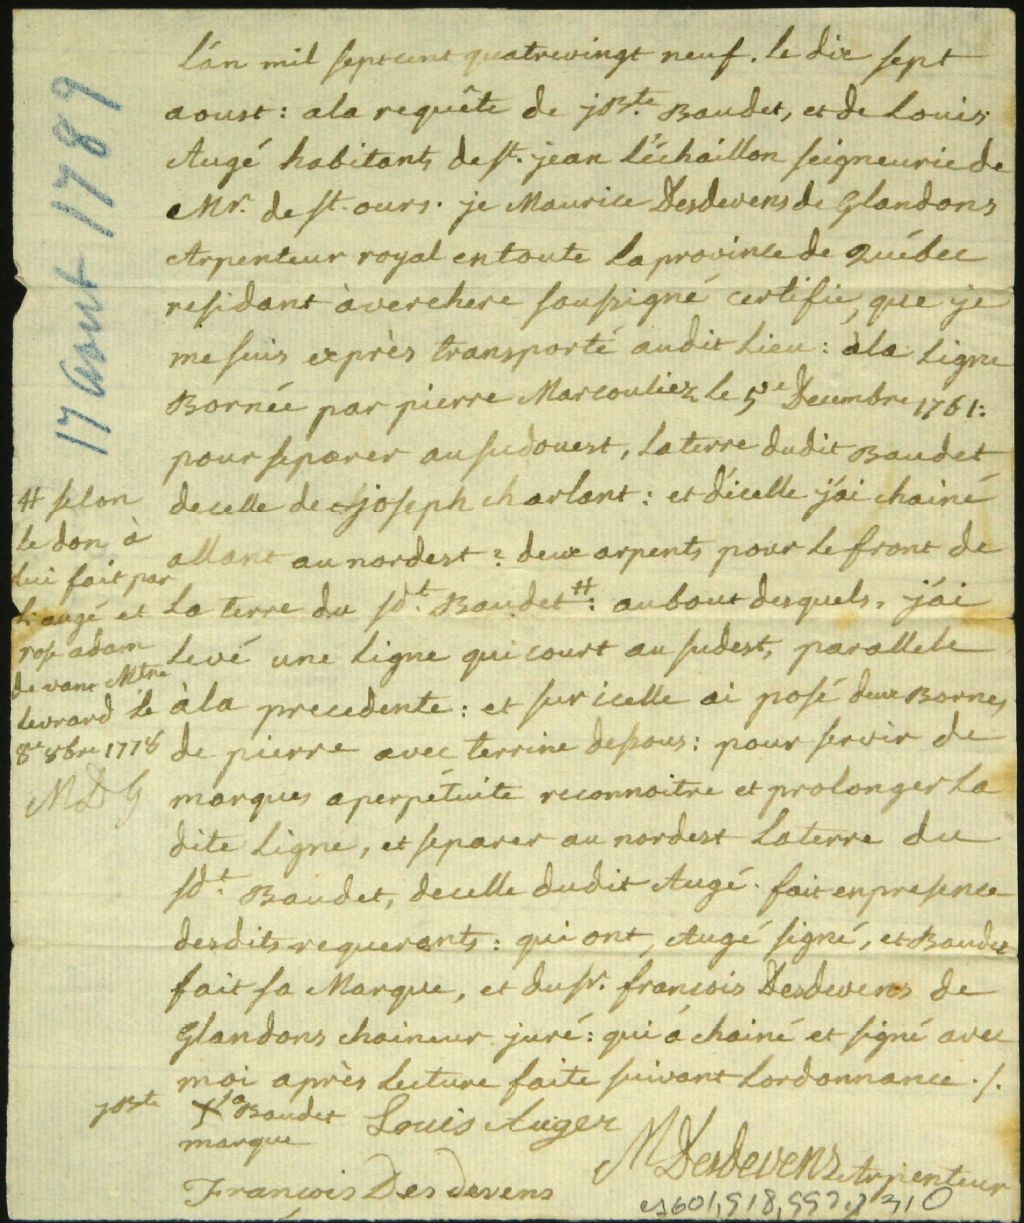 17 Aout 1789
L'an mil sept cent quatrevingt neuf. le dix sept
aoust : a la requête de j Bte. Baudet, et de Louis
Augé habitants de st. jean L'échaillon seigneurie de
Mr. de st. ours. je Maurice Desdevens de Glandons
Arpenteur royal en toute la province de Québec
residant à verchere soussigné certifie, que je
me suis exprès transporté audit Lieu : à la Ligne
Bornée par pierre Marcouliez le 5e Decembre 1761 :
pour separer au sudouest, la terre dudit Baudet
de celle de joseph charlant : et d'icelle j'ai chainé
allant au nordest : deux arpents pour le front de
la terre du sdt. Baudet # : au bout desquels, j'ai
Levé une Ligne qui court au sudest, parallele
à la precedente : et sur icelle ai posé deux Bornes
de pierre avec terrine dessous : pour servir de
marques a perpétuité reconnoitre et prolonger La
dite Ligne, et separer au nordest La terre du
sdt. Baudet, de celle dudit Augé. fait en presence
desdits requerants : qui ont, Augé signé, et Baudet
fait sa Marque, et du sr. françois Desdevens de
Glandons chaineur juré : qui a chainé et signé avec
moi après Lecture faite suivant Lordonnance ./.
# selon
le don à
lui fait par
L. augé et
rose adam
devant Mtre
Levrard le
8e 8bre 1778
MDG
j Bte X La Baudet
marque
Louis Auger
MDesdevens Arpenteur
François Desdevens